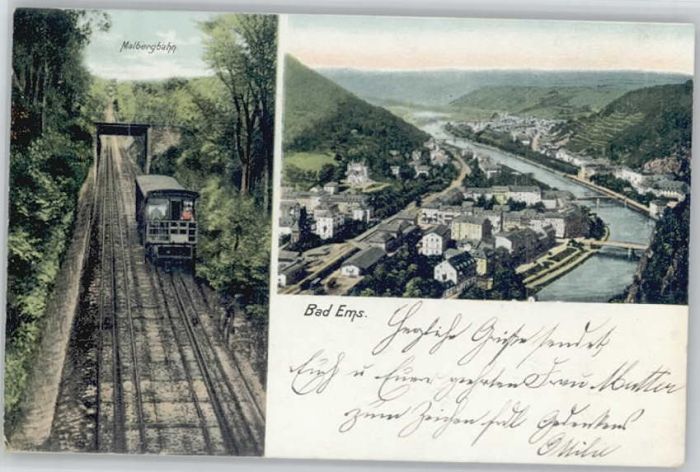 Malbergbahn
Bad Ems.
Herzliche Grüße sendet
Euch u Eurer geehrten Frau Mutter
zum Zeichen Gedenkens
Ottilie